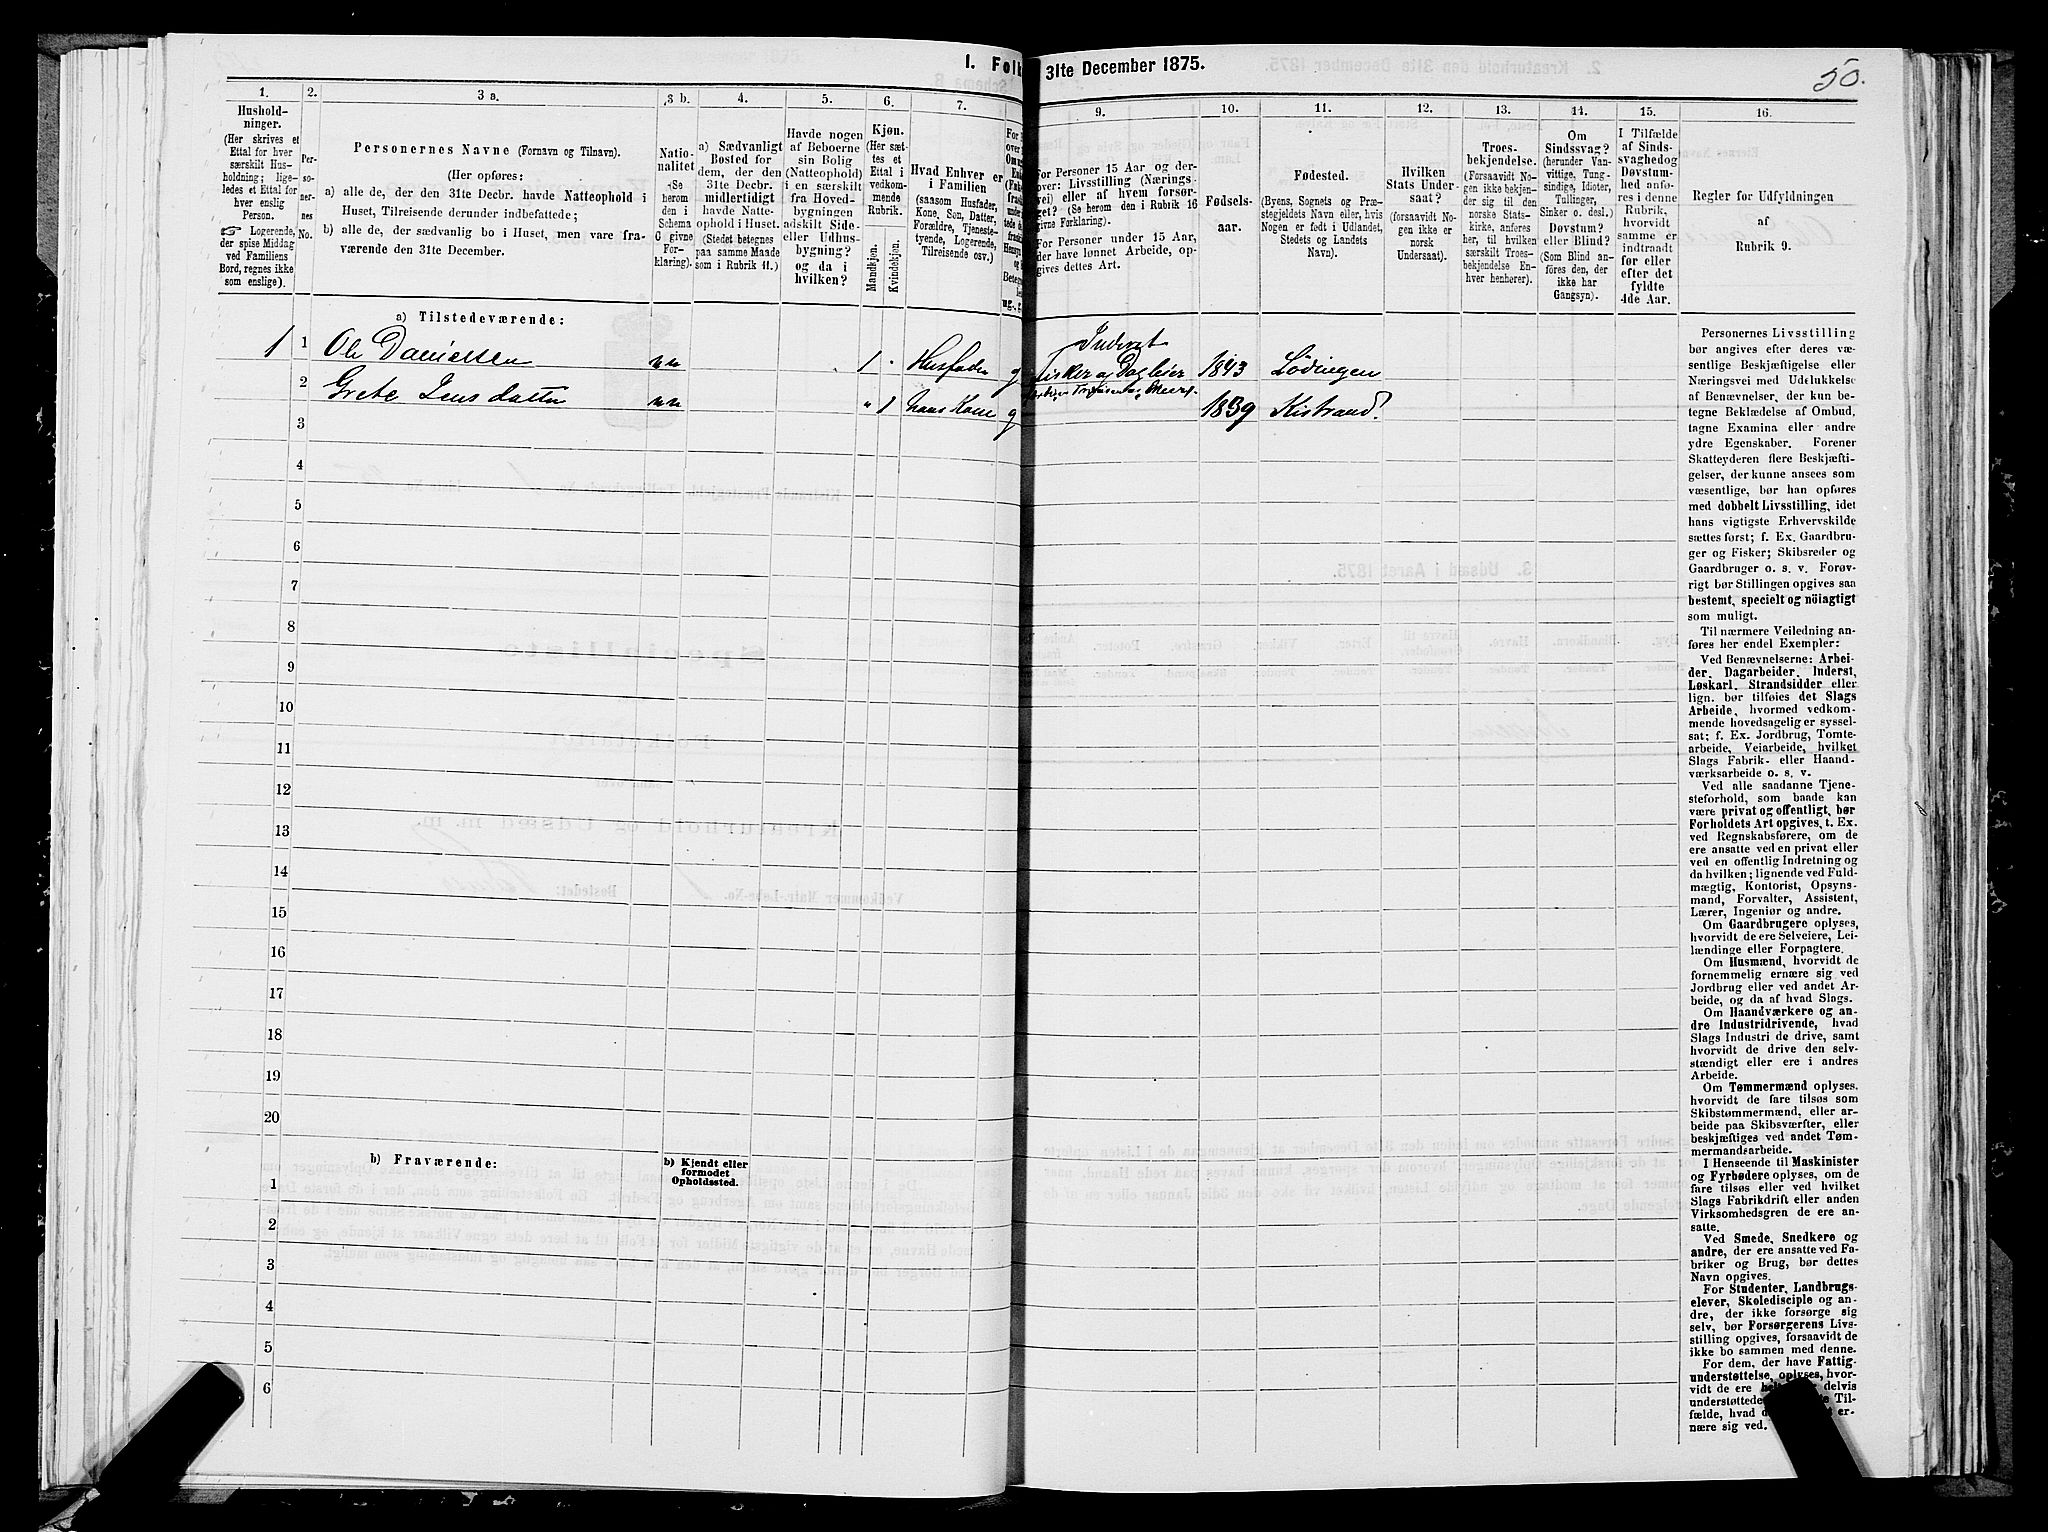 1. Folk
31te December 1875.
50.
1.
2.
3 a.
3 b.
4.
5.
6.
7.
9.
10.
11.
12.
13.
14.
15.
16.
Hushold-
ninger.
(Her skrives et
Ettal for hver
særskilt Hus-
holdning; lige-
ledes et Ettal for
hver enslig
Person.
☞ Logerende,
der spise Middag
ved Familiens
Bord, regnes ikke
som enslige).
Per-
so-
ner-
nes
No.
Personernes Navne (Fornavn og Tilnavn).
(Her opføres:
a) alle de, der den 31te Decbr. havde Natteophold i
Huset, Tilreisende derunder indbefattede;
b) alle de, der sædvanlig bo i Huset, men vare fra-
værende den 31te December.
Natio-
nalitet
(Se
herom
den i
Schema
C givne
For-
klaring).
a) Sædvanligt
Bosted for
dem, der den
31te Decbr.
midlertidigt
havde Natte-
ophold i Huset.
(Stedet betegnes
paa samme Maade
som i Rubrik 11.)
Havde nogen
af Beboerne
sin Bolig
(Natteophold)
i en særskilt
fra Hoved-
bygningen
adskilt Side-
eller Udhus-
bygning?
og da i
hvilken?
Kjøn.
(Her sæt-
tes et
Ettal i
vedkom-
mende
Rubrik.
Mandkjøn.
Kvindekjøn.
Hvad Enhver er
i Familien
(saasom Husfader,
Kone, Søn, Datter,
Forældre, Tjeneste-
tyende, Logerende,
Tilreisende osv.)
For Personer 15 Aar og der-
over: Livsstilling (Nærings-
vei) eller af hvem forsør-
get? (Se herom den i Rubrik 16
givne Forklaring).
For Personer under 15 Aar,
der have lønnet Arbeide, op-
gives dettes Art.
Fødsels-
aar.
Fødested.
(Byens, Sognets og Præ-
stegjeldets Navn eller, hvis
Nogen er født i Udlandet,
Stedets og Landets
Navn).
Hvilken
Stats Under-
saat?
(forsaavidt No-
gen ikke er
norsk
Undersaat).
Troes-
bekjendelse.
(Forsaavidt No-
gen ikke bekjen-
der sig til den
norske Stats-
kirke, anføres
her, til hvilken
særskilt Troes-
bekjendelse En-
hver henhører).
Om
Sindssvag?
(herunder Van-
vittige, Tung-
sindige, Idioter,
Tullinger,
Sinker o. desl.)
Døvstum?
eller Blind?
(Som Blind an-
føres den, der
ikke har
Gangsyn).
I Tilfælde
af Sinds-
svaghed og
Døvstum-
hed anfø-
res i denne
Rubrik,
hvorvidt
samme er
indtraadt
før eller
efter det
fyldte
4de Aar.
Regler for Udfyldningen
af
Rubrik 9.
a) Tilstedeværende:
1 1 Ole Danielsen 1 Husfader g Inderst
Fisker og Dagleier 1843 Lødingen
2 Grete Jensdatter 1 hans Kone g 1839 Kistrand
3
4
5
6
7
8
9
10
11
12
13
14
15
16
17
18
19
20
b) Fraværende:
b) Kjendt eller
formodet
Opholdssted.
1
2
3
4
5
6
Personernes Livsstilling
bør angives efter deres væ-
sentlige Beskjæftigelse eller
Næringsvei med Udelukkelse
af Benævnelser, der kun be-
tegne Beklædelse af Ombud,
tagne Examina eller andre
ydre Egenskaber. Forener
Skatteyderen flere Beskjæfti-
gelser, der kunne ansees som
væsentlige, bør han opføres
med dobbelt Livsstilling, idet
hans vigtigste Erhvervskilde
sættes først; f. Ex. Gaardbru-
ger og Fisker; Skibsreder og
Gaardbruger o. s. v. Forøv-
rigt bør Stillingen opgives saa
bestemt, specielt og nöiagtigt
som muligt.
Til nærmere Veiledning an-
føres her endel Exempler:
Ved Benævnelserne: Arbei-
der, Dagarbeider, Inderst,
Løskarl, Strandsidder eller
lign. bør tilføies det Slags
Arbeide, hvormed vedkom-
mende hovedsagelig er syssel-
sat; f. Ex. Jordbrug, Tomte-
arbeide, Veiarbeide, hvilket
Slags Fabrik- eller Haand-
værksarbeide o. s. v.
Ved alle saadanne Tjene-
steforhold, som baade kan
være privat og offentligt, bør
Forholdets Art opgives, t. Ex.
ved Regnskabsførere, om de
ere ansatte ved en privat eller
ved en offentlig Indretning og
da hvilken; lignende ved Fuld-
mægtig, Kontorist, Opsyns-
mand, Forvalter, Assistent,
Lærer, Ingeniør og andre.
Om Gaardbrugere oplyses,
hvorvidt de ere Selveiere, Lei-
lændinge eller Forpagtere.
Om Husmænd, hvorvidt de
fornemmelig ernære sig ved
Jordbrug eller ved andet Ar-
beide, og da af hvad Slags.
Om Haandværkere og an-
dre Industridrivende, hvad
Slags Industri de drive, samt
hvorvidt de drive den selv-
stændigt eller ere i andres
Arbeide.
Om Tømmermænd oplyses,
hvorvidt de fare tilsøs som
Skibstømmermænd, eller ar-
beide paa Skibsværfter, eller
beskjæftiges ved andet Tøm-
mermandsarbeide.
I Henseende til Maskinister
og Fyrbødere oplyses, om de
fare tilsøs eller ved hvilket
Slags Fabrikdrift eller anden
Virksomhedsgren de ere an-
satte.
Ved Smede, Snedkere og
andre, der ere ansatte ved Fa-
briker og Brug, bør dettes
Navn opgives.
For Studenter, Landbrugs-
elever, Skoledisciple og an-
dre, der ikke forsørge sig
selv, bør Forsørgerens Livs-
stilling opgives, forsaavidt de
ikke bo sammen med denne.
For dem, der have Fattig-
understøttelse, oplyses, hvor-
vidt de ere delvis
understøttede Til-
fælde, hvad er-
nære sig ved.